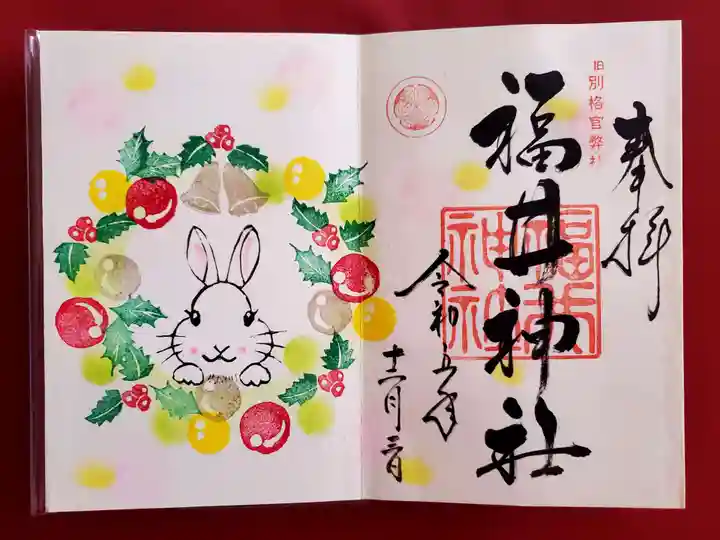 奉拝
旧別格官幣社
福井神社
福井
神社
令和五年
十二月三日